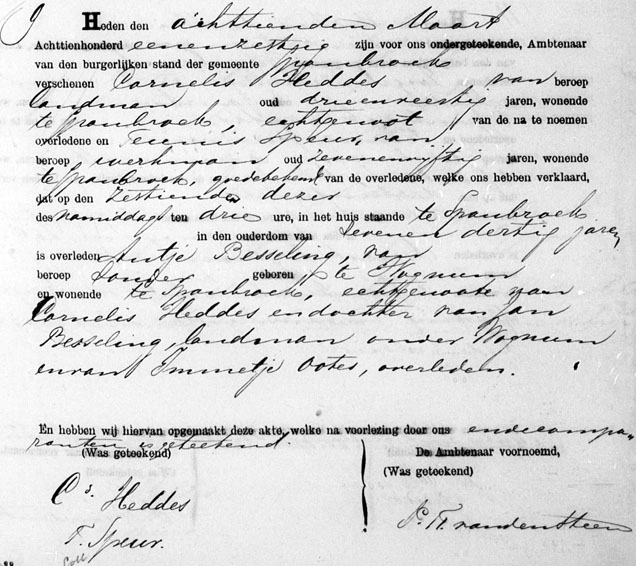 Heden den achttienden Maart
Achttienhonderd eenenzestig zijn voor ons ondergeteekende, Ambtenaar
van den burgerlijken stand der gemeente Spanbroek
verschenen Cornelis Heddes van beroep
landman oud drieenveertig jaren, wonende
te Spanbroek, echtgenoot van de na te noemen
overledene en Teunis Speur, van
beroep werkman oud zevenenvijftig jaren, wonende
te Spanbroek, goedebekend van de overledene, welke ons hebben verklaard,
dat op den zestienden dezer
des namiddags ten drie ure, in het huis staande te Spanbroek
in den ouderdom van zevenen dertig jaren
is overleden Antje Besseling, van
beroep zonder geboren te Wognum
en wonende te Spanbroek, echtgenoote van
Cornelis Heddes en dochter van Jan
Besseling, landman onder Wognum
en van Immetje Ootes, overleden.
En hebben wij hiervan opgemaakt deze akte, welke na voorlezing door ons en de compa„
ranten is geteekend.
(Was geteekend)
Cs. Heddes
T. Speur.
De Ambtenaar voornoemd,
(Was geteekend)
van den Steen
Coll